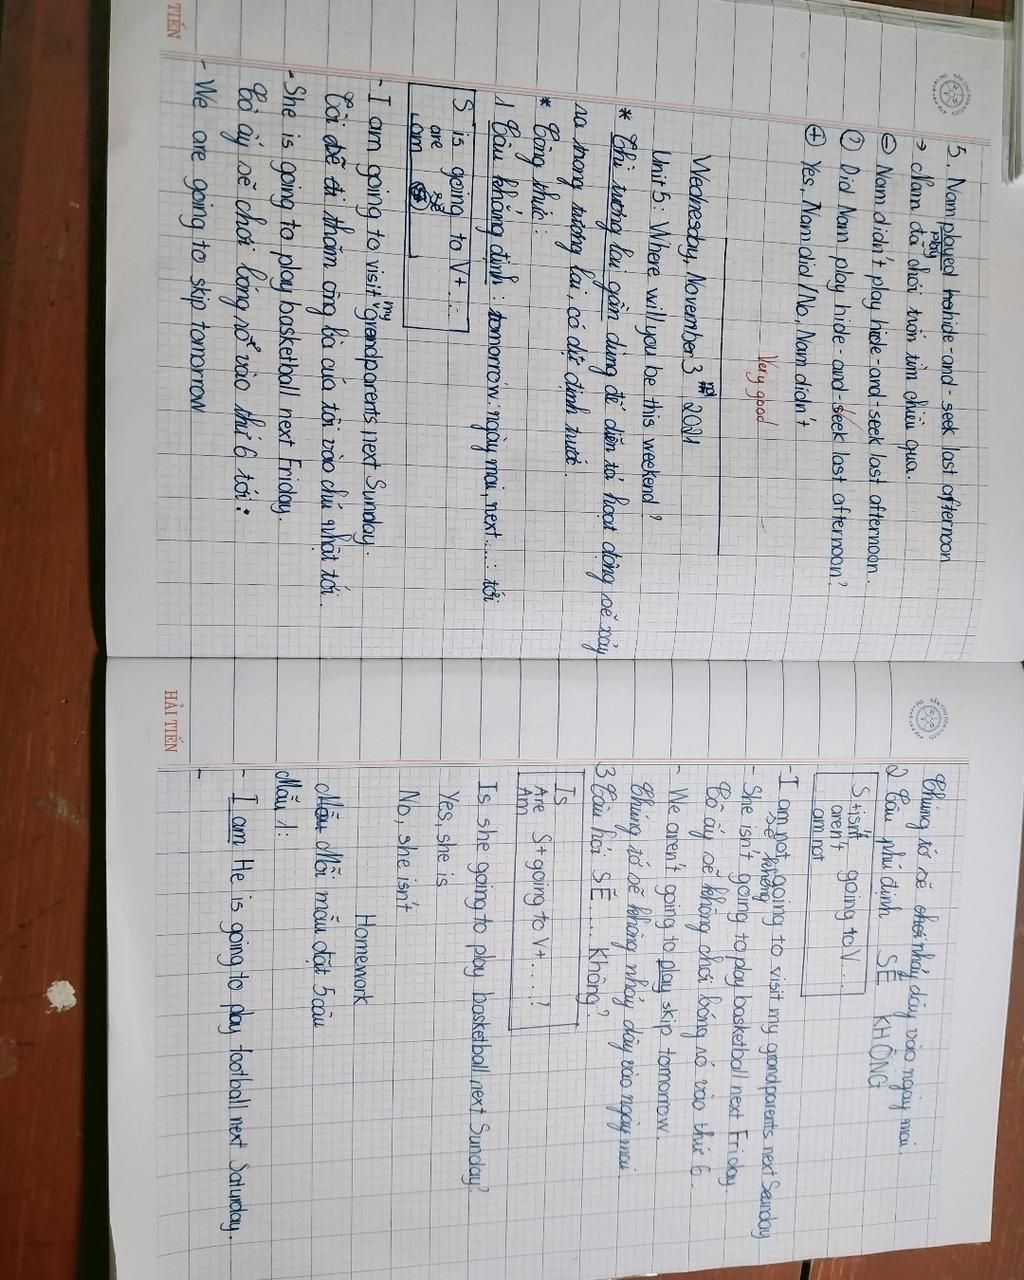 5. Nam played hahide-and-seek last afternoon
play
→ Nam đã chơi trốn tìm chiều qua.
⊖ Nam didn't play hide-and-seek last afternoon.
? Did Nam play hide-and-seek last afternoon?
⊕ Yes, Nam did / No, Nam didn't
Very good
Wednesday, November 3rd 2021
Unit 5: Where will you be this weekend?
* Thì tương lai gần dùng để diễn tả hoạt động sẽ xảy
ra trong tương lai, có dự định trước.
* Công thức:
1 Câu khẳng định: tomorrow: ngày mai, next...: tới
S is going to V+....
are sẽ
am
- I am going to visit my grandparents next Sunday.
Tôi sẽ đi thăm ông bà của tôi vào chủ nhật tới.
- She is going to play basketball next Friday.
Cô ấy sẽ chơi bóng rổ vào thứ 6 tới.
- We are going to skip tomorrow
TIẾN
Chúng tớ sẽ chơi nhảy dây vào ngày mai.
2 Câu phủ định SẼ KHÔNG
S+isn't going to V...
aren't
am not
- I am not going to visit my grandparents next Saunday
sẽ không
- She isn't going to play basketball next Friday.
Cô ấy sẽ không chơi bóng rổ vào thứ 6.
- We aren't going to play skip tomorrow.
Chúng tớ sẽ không nhảy dây vào ngày mai.
3 Câu hỏi SẼ.... Không?
Is
Are S+going to V+.....?
Am
Is she going to play basketball next Sunday?
Yes, she is
No, she isn't
Homework
Mẫu Mỗi mẫu đặt 5 câu
Mẫu 1:
- I am He is going to play football next Saturday.
-
HẢI TIẾN